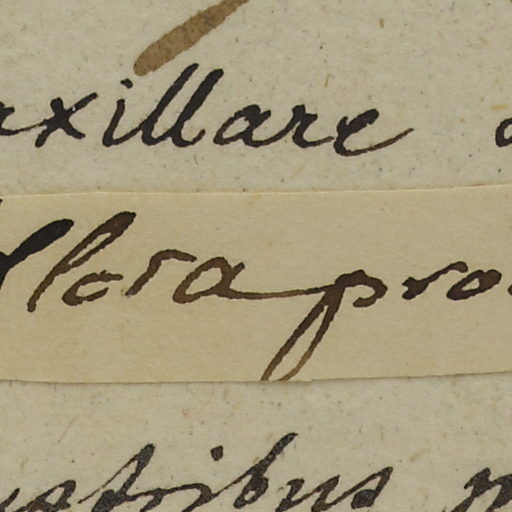 axillare
flora pro
stribus